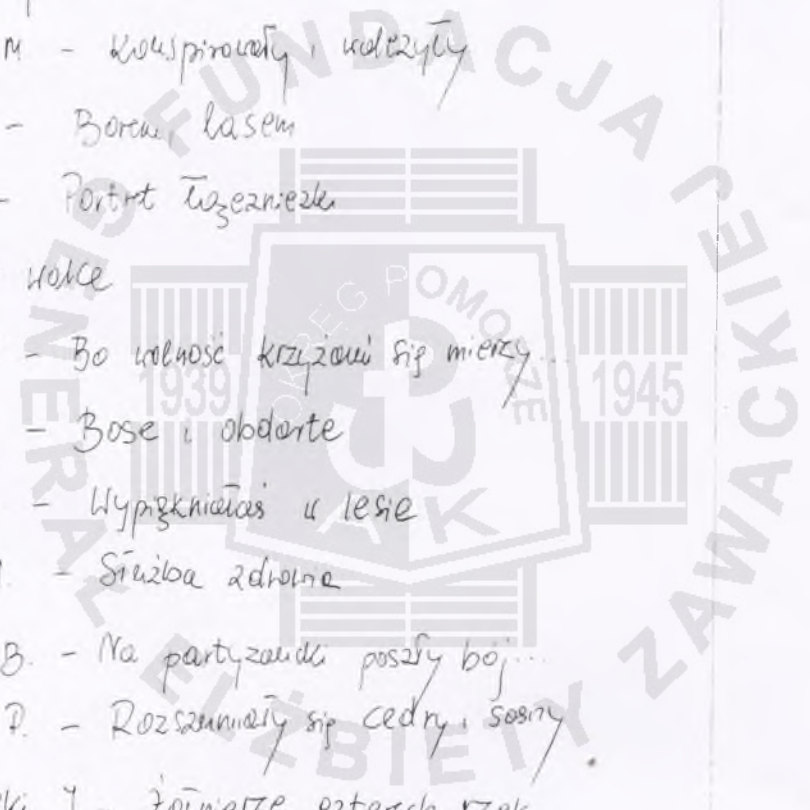 M - Konspirowały i walczyły
- Borem, lasem
- Portret łączniczki
walce
- Bo wolność krzyżami się mierzy...
- Bose i obdarte
- Wypiękniałaś w lesie
. - Służba zdrowia
B. - Na partyzancki poszły bój...
P. - Rozszumiały się cedry i sosny
ki J - Żołnierze czterech rzek
FUNDACJA GENERAŁ ELŻBIETY ZAWACKIEJ
OKRĘG POMORZE
1939 1945
AK